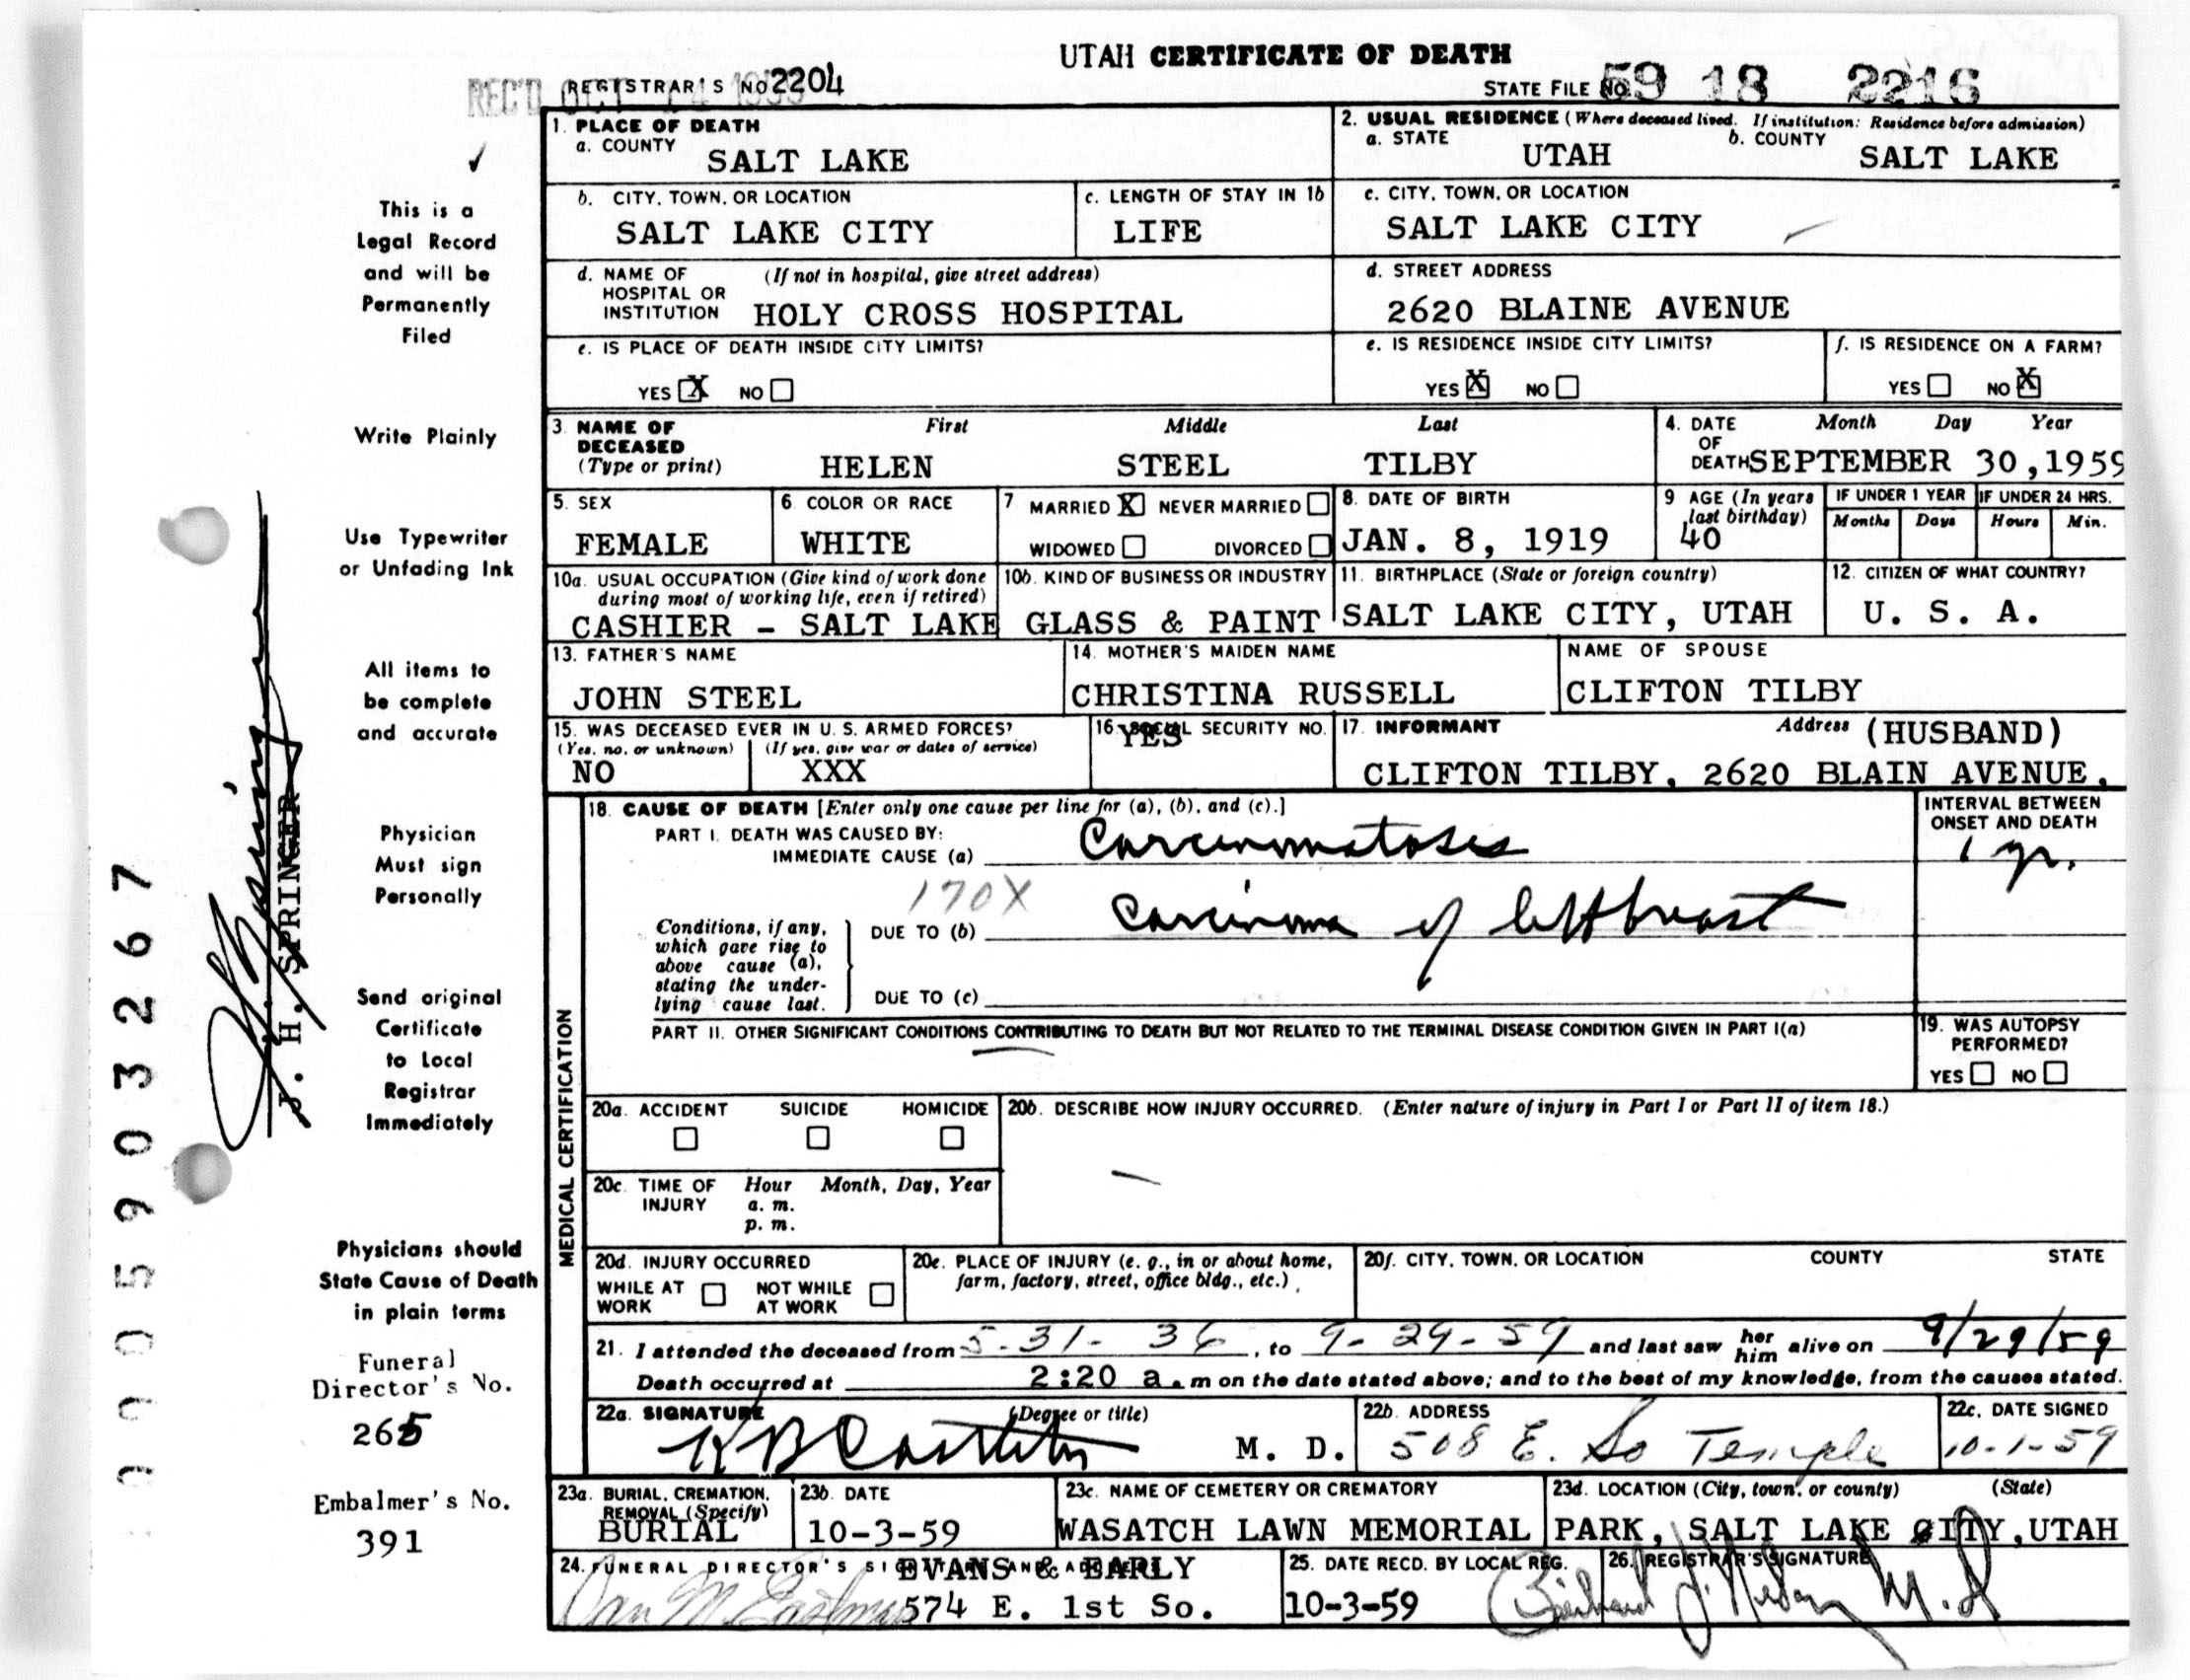 UTAH CERTIFICATE OF DEATH
REC'D OCT
REGISTRAR'S NO 2204
STATE FILE NO. 59 18 2216
1. PLACE OF DEATH
a. COUNTY
SALT LAKE
2. USUAL RESIDENCE (Where deceased lived. If institution: Residence before admission)
a. STATE b. COUNTY
UTAH SALT LAKE
b. CITY, TOWN, OR LOCATION
SALT LAKE CITY
c. LENGTH OF STAY IN 1b
LIFE
c. CITY, TOWN, OR LOCATION
SALT LAKE CITY
d. NAME OF (If not in hospital, give street address)
HOSPITAL OR
INSTITUTION HOLY CROSS HOSPITAL
d. STREET ADDRESS
2620 BLAINE AVENUE
e. IS PLACE OF DEATH INSIDE CITY LIMITS?
YES X NO
e. IS RESIDENCE INSIDE CITY LIMITS?
YES X NO
f. IS RESIDENCE ON A FARM?
YES NO X
3. NAME OF DECEASED First Middle Last
(Type or print) HELEN STEEL TILBY
4. DATE OF DEATH Month Day Year
SEPTEMBER 30, 1959
5. SEX
FEMALE
6. COLOR OR RACE
WHITE
7 MARRIED X NEVER MARRIED
WIDOWED DIVORCED
8. DATE OF BIRTH
JAN. 8, 1919
9 AGE (In years last birthday)
40
IF UNDER 1 YEAR IF UNDER 24 HRS.
Months Days Hours Min.
10a. USUAL OCCUPATION (Give kind of work done
during most of working life, even if retired)
CASHIER - SALT LAKE
10b. KIND OF BUSINESS OR INDUSTRY
GLASS & PAINT
11. BIRTHPLACE (State or foreign country)
SALT LAKE CITY, UTAH
12. CITIZEN OF WHAT COUNTRY?
U. S. A.
13. FATHER'S NAME
JOHN STEEL
14. MOTHER'S MAIDEN NAME
CHRISTINA RUSSELL
NAME OF SPOUSE
CLIFTON TILBY
15. WAS DECEASED EVER IN U. S. ARMED FORCES?
(Yes, no, or unknown) (If yes, give war or dates of service)
NO XXX
16. SOCIAL SECURITY NO.
YES
17. INFORMANT Address (HUSBAND)
CLIFTON TILBY, 2620 BLAIN AVENUE,
MEDICAL CERTIFICATION
18. CAUSE OF DEATH [Enter only one cause per line for (a), (b), and (c).]
PART I. DEATH WAS CAUSED BY:
IMMEDIATE CAUSE (a) Carcinomatosis
INTERVAL BETWEEN
ONSET AND DEATH
1 yr.
170X
Conditions, if any,
which gave rise to
above cause (a),
stating the under-
lying cause last.
DUE TO (b) Carcinoma of left breast
DUE TO (c)
PART II. OTHER SIGNIFICANT CONDITIONS CONTRIBUTING TO DEATH BUT NOT RELATED TO THE TERMINAL DISEASE CONDITION GIVEN IN PART I(a)
19. WAS AUTOPSY
PERFORMED?
YES NO
20a. ACCIDENT SUICIDE HOMICIDE
20b. DESCRIBE HOW INJURY OCCURRED. (Enter nature of injury in Part I or Part II of item 18.)
20c. TIME OF INJURY Hour Month, Day, Year
a. m.
p. m.
20d. INJURY OCCURRED
WHILE AT WORK NOT WHILE AT WORK
20e. PLACE OF INJURY (e. g., in or about home,
farm, factory, street, office bldg., etc.)
20f. CITY, TOWN, OR LOCATION COUNTY STATE
21. I attended the deceased from 5-31-36, to 9-29-59 and last saw her him alive on 9/29/59
Death occurred at 2:20 a. m on the date stated above; and to the best of my knowledge, from the causes stated.
22a. SIGNATURE (Degree or title)
M. D.
22b. ADDRESS
508 E. So Temple
22c. DATE SIGNED
10-1-59
23a. BURIAL, CREMATION,
REMOVAL (Specify)
BURIAL
23b. DATE
10-3-59
23c. NAME OF CEMETERY OR CREMATORY
WASATCH LAWN MEMORIAL
23d. LOCATION (City, town, or county) (State)
PARK, SALT LAKE CITY, UTAH
24. FUNERAL DIRECTOR'S SIGNATURE AND ADDRESS
EVANS & EARLY
574 E. 1st So.
25. DATE RECD. BY LOCAL REG.
10-3-59
26. REGISTRAR'S SIGNATURE
This is a
Legal Record
and will be
Permanently
Filed
Write Plainly
Use Typewriter
or Unfading Ink
All items to
be complete
and accurate
Physician
Must sign
Personally
Send original
Certificate
to Local
Registrar
Immediately
Physicians should
State Cause of Death
in plain terms
Funeral
Director's No.
265
Embalmer's No.
391
J. H. SPRINGER
0005903267